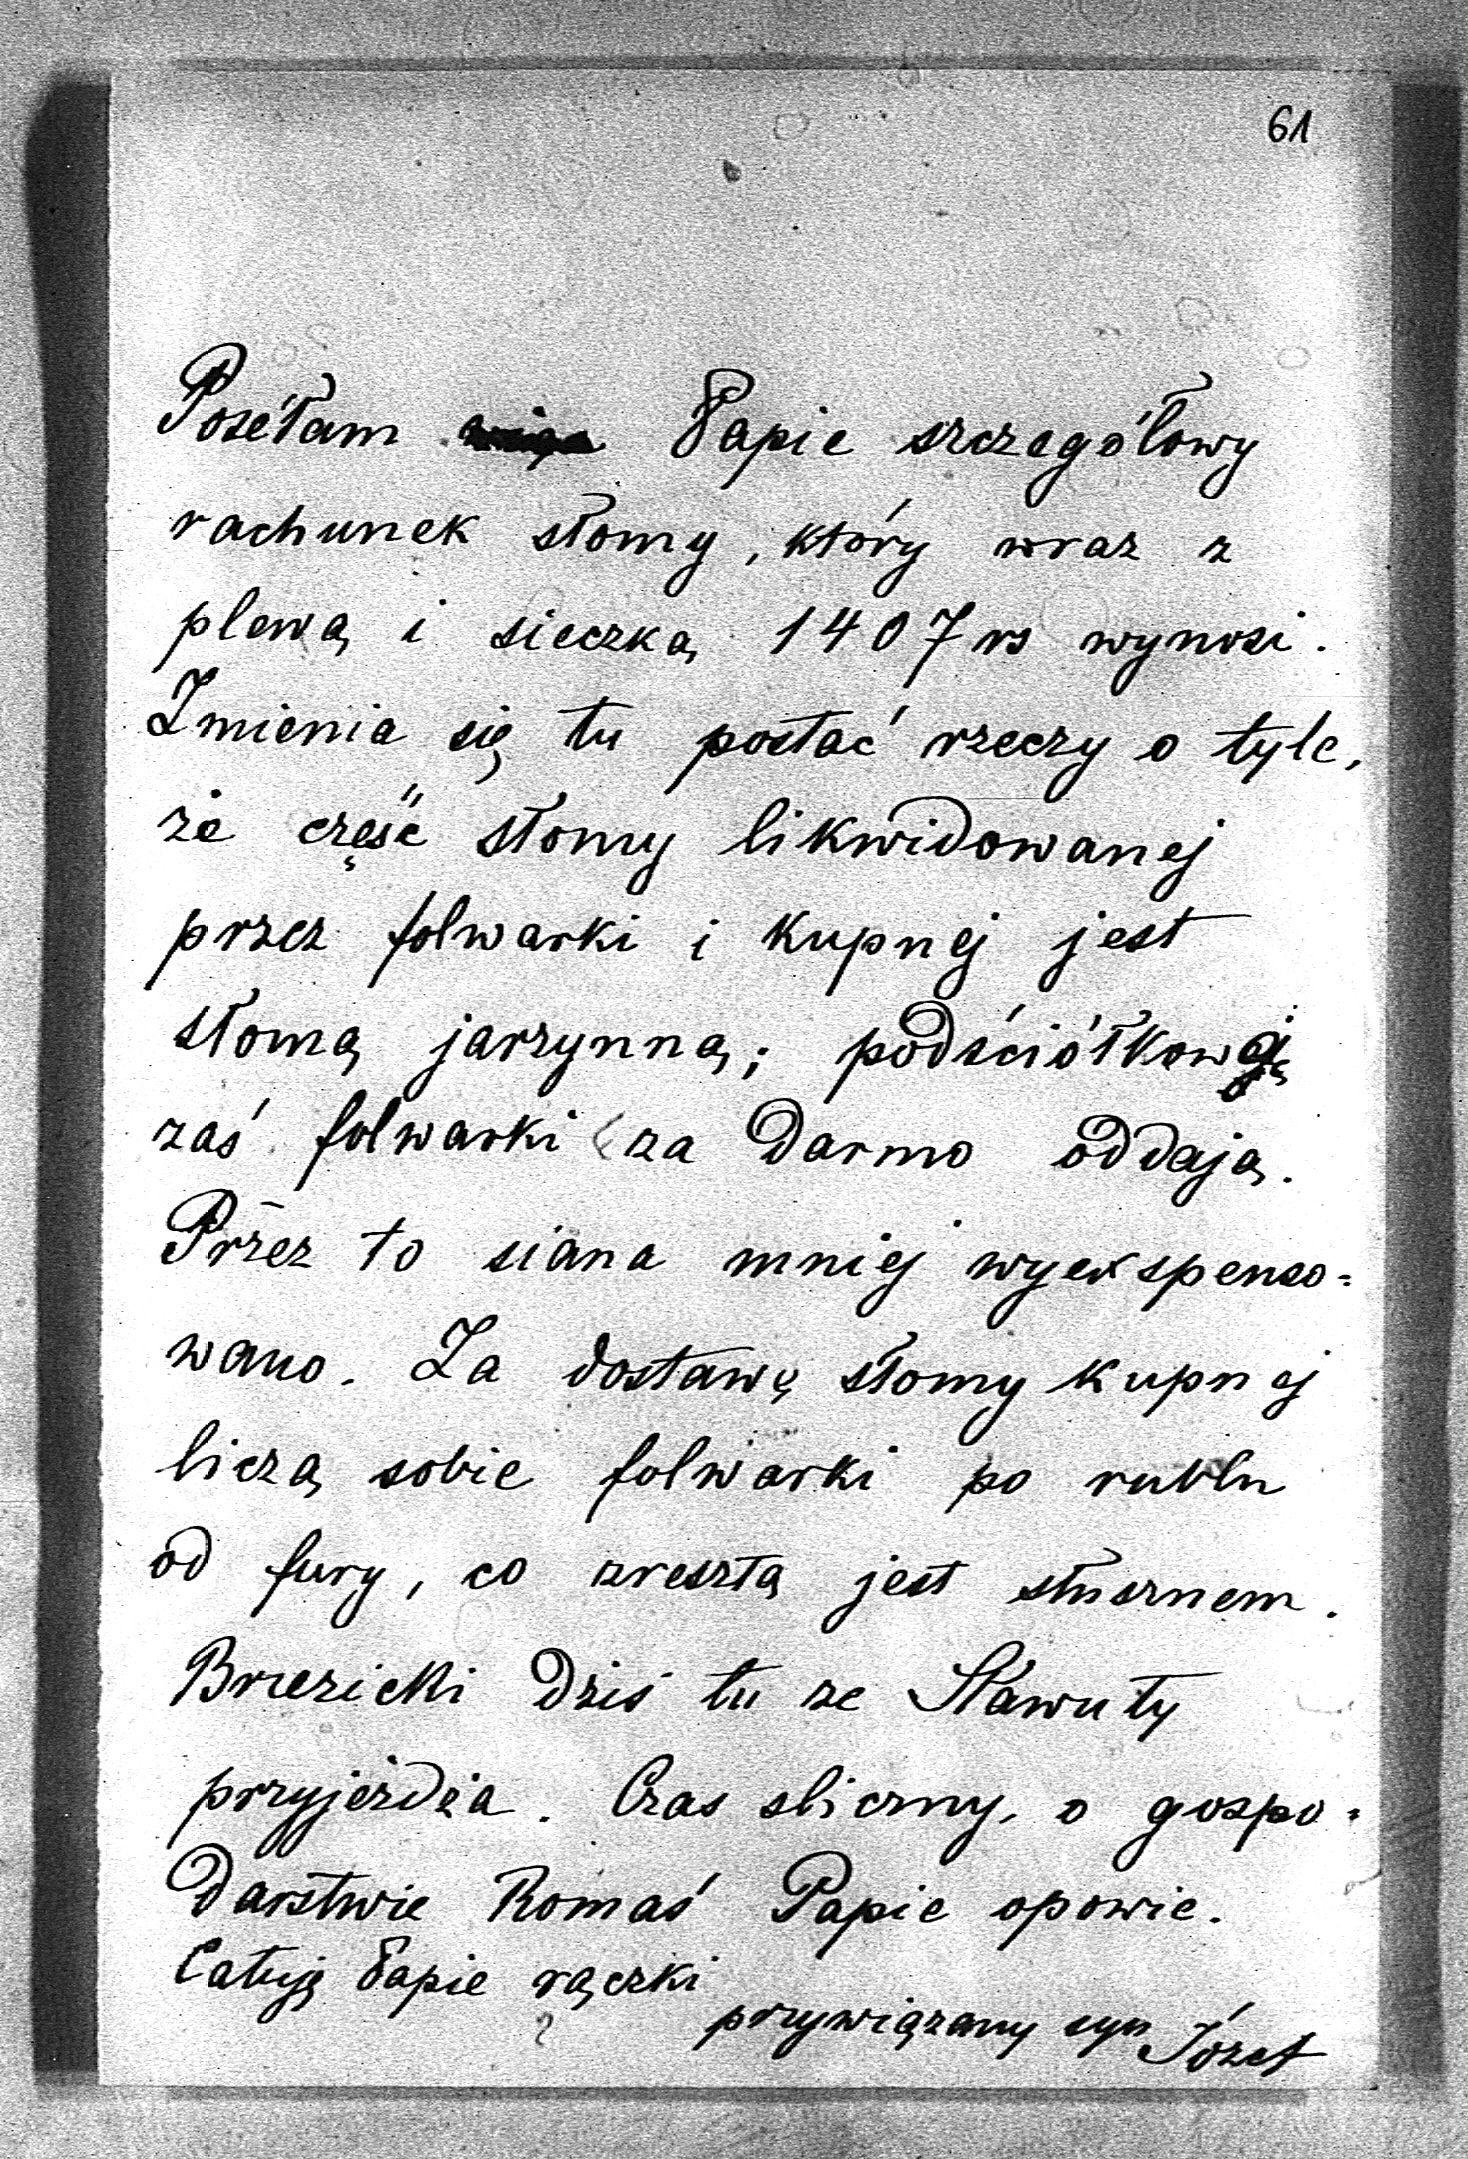 61
Posełam Papie szczegółowy
rachunek słomy, który wraz z
plewą i sieczką 1407 rs wynosi.
Zmienia się tu postać rzeczy o tyle,
że część słomy likwidowanej
przez folwarki i kupnej jest
słomą jarzynną; podściółkową
zaś folwarki za darmo oddają.
Przez to siana mniej wyekspenso=
wano. Za dostawę słomy kupnej
liczą sobie folwarki po rublu
od fury, co zresztą jest słusznem.
Brzezicki dziś tu ze Sławuty
przyjeżdża. Czas śliczny, o gospo=
darstwie Romaś Papie opowie.
Całuję Papie rączki
przywiązany syn Józef